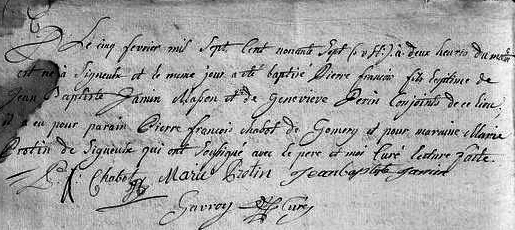 Le cinq fevrier mil Sept Cent nonante Sept (v. St.) à deux heures du matin
est né à Signeulx et le meme jour a été baptisé Pierre francois fils legitime de
Jean Baptiste Jamin Masson et de Genevieve Perin Conjoints de ce lieu;
il a eu pour parain Pierre francois Chabot de Gomery et pour maraine Marie
Protin de Signeulx qui ont Soussigné avec le pere et moi Curé lecture faite
P. f. Chabot Marie Protin Jean baptiste Jamin
Gavroy Curé